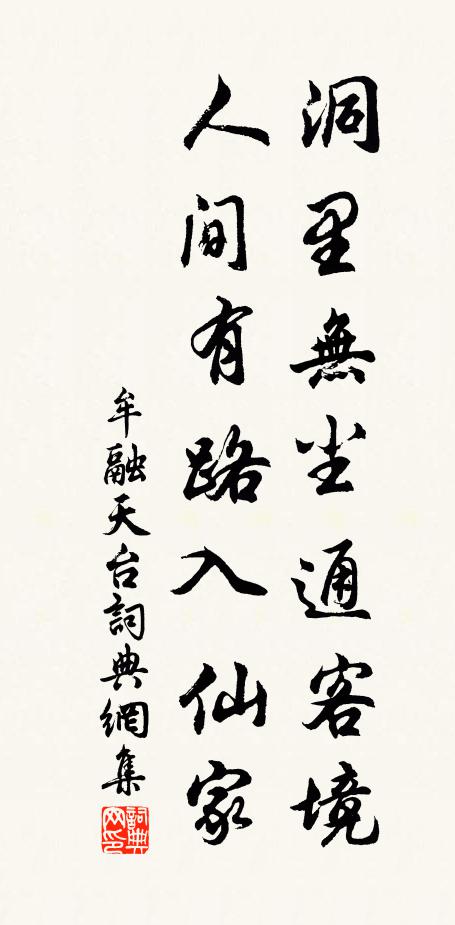 洞里無尘通客境
人间有路入仙家
牟融天台詞典網集
詞典网印